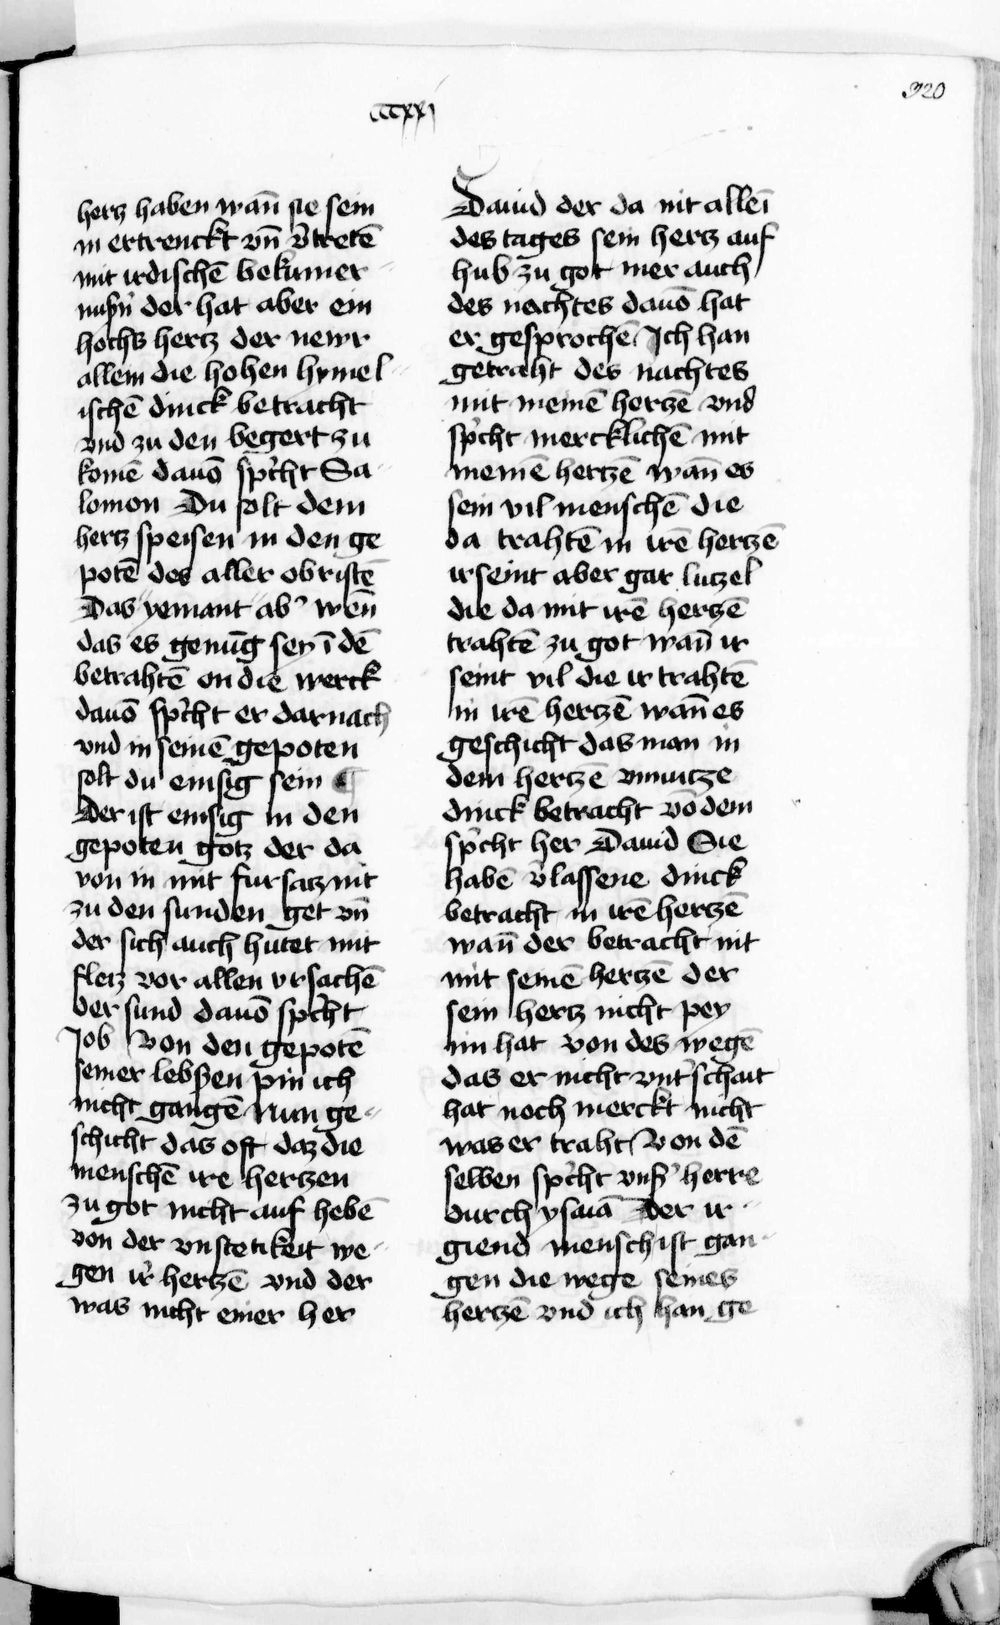 320
cccxxj
hertz haben wañ sie sein
in ertrenckt vñ v̉tretē
mit irdischē bekūmer
nuſſn̉ der hat aber ein
hochs hertz der newr
allein die hohen hymel
ischē dinck betracht
vnd zu den begert zu
komē dauō sp̉cht Sa
lomon Du solt dein
hertz speisen in den ge
potē des aller obristē
Das yemant ab̉ wēn
das es genūg sey ī dē
betrahtē on die werck
dauō sp̉cht er darnach
vnd in seinē gepoten
solt du emsig sein ¶
Der ist emsig in den
gepoten gotz der da
von in mit fursatz nit
zu den sunden get vñ
der sich auch hutet mit
fleiz vor allen vrsachē
der sund dauō sp̉cht
Job Von den gepotē
seiner lebßen pin ich
nicht gangē Nun ge
schicht das oft daz die
menschē ire hertzen
zu got nicht auf hebē
von der vnstetikeit we
gen ir̉ hertzē vnd der
was nicht einer her
Dauid der da nit alleī
des tages sein hertz auf
hub zu got mer auch
des nachtes dauō hat
er gesprochē Ich han
getraht des nachtes
mit meinē hertzē vnd
sp̉cht mercklichē mit
meinē hertzē wañ es
sein vil menschē die
da trahtē in irē hertzē
ir seint aber gar lutzel
die da mit irē hertzē
trahtē zu got wañ ir
seint vil die ir trahtē
in irē hertzē wañ es
geschicht das man in
dem hertzē vnnutze
dinck betracht vō dem
sp̉cht her Dauid Sie
habē v̉lassene dinck
betracht in irē hertzē
wañ der betracht nit
mit seinē hertzē der
sein hertz nicht pey
im hat von des wegē
das er nicht vnt̉schait
hat noch merckt nicht
was er traht Von dē
selben sp̉cht vnſ̉ herre
durch ysaiā Der ir
giend mensch ist gan
gen die wege seines
hertzē vnd ich han ge